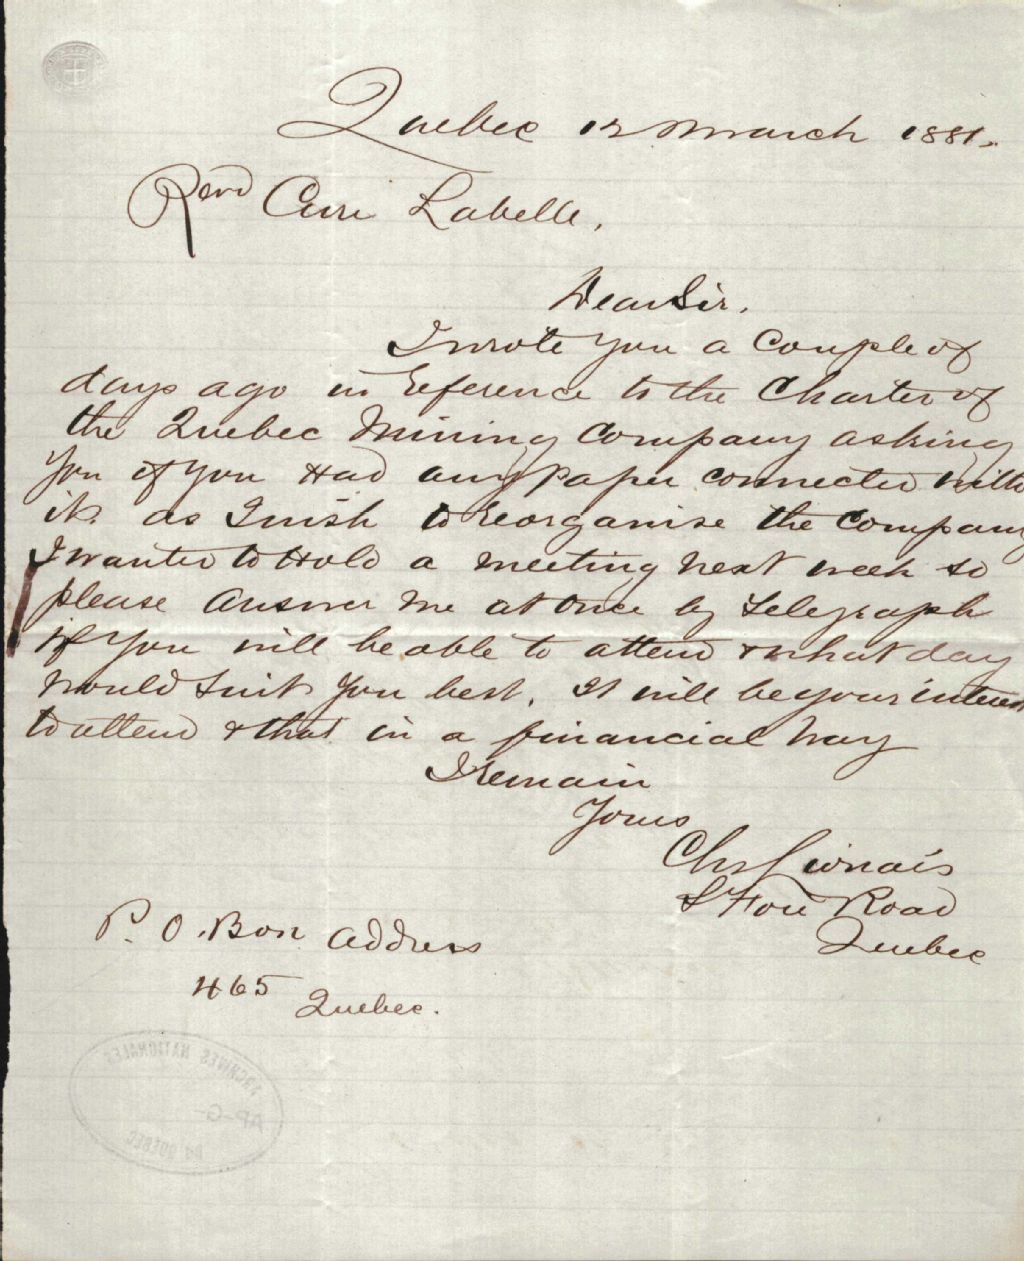 Quebec 12 March 1881.
Revd Curé Labelle,
Dear Sir,
I wrote you a couple of
days ago in reference to the Charter of
the Quebec Mining Company asking
you if you Had any paper connected with
it. as I wish to reorganise the Company
I wanted to Hold a meeting next week so
please Answer me at once by Telegraph
if you will be able to attend & what day
would suit you best. It will be your interest
to attend & that in a financial way
I remain
Yours
Chs
St Foie Road
Quebec
P. O. Box address
465 Quebec.
ARCHIVES NATIONALES
AP-G-
DU QUEBEC